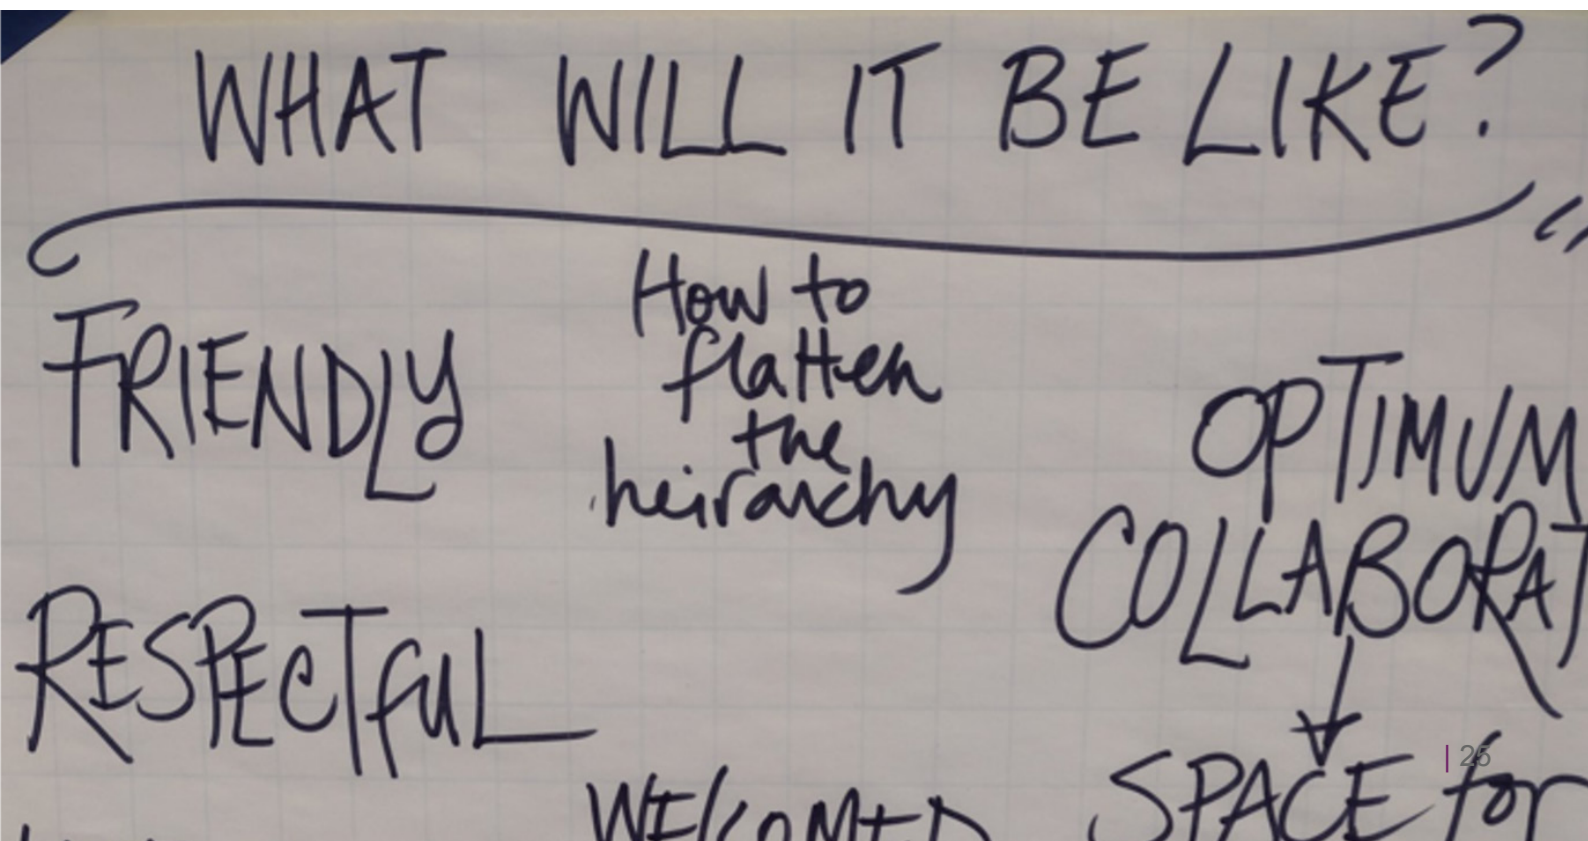 WHAT WILL IT BE LIKE?
FRIENDLY
How to
flatten
the
heirarchy
OPTIMUM
COLLABORAT
RESPECTfUL
WELCOMED
SPACE for
| 25